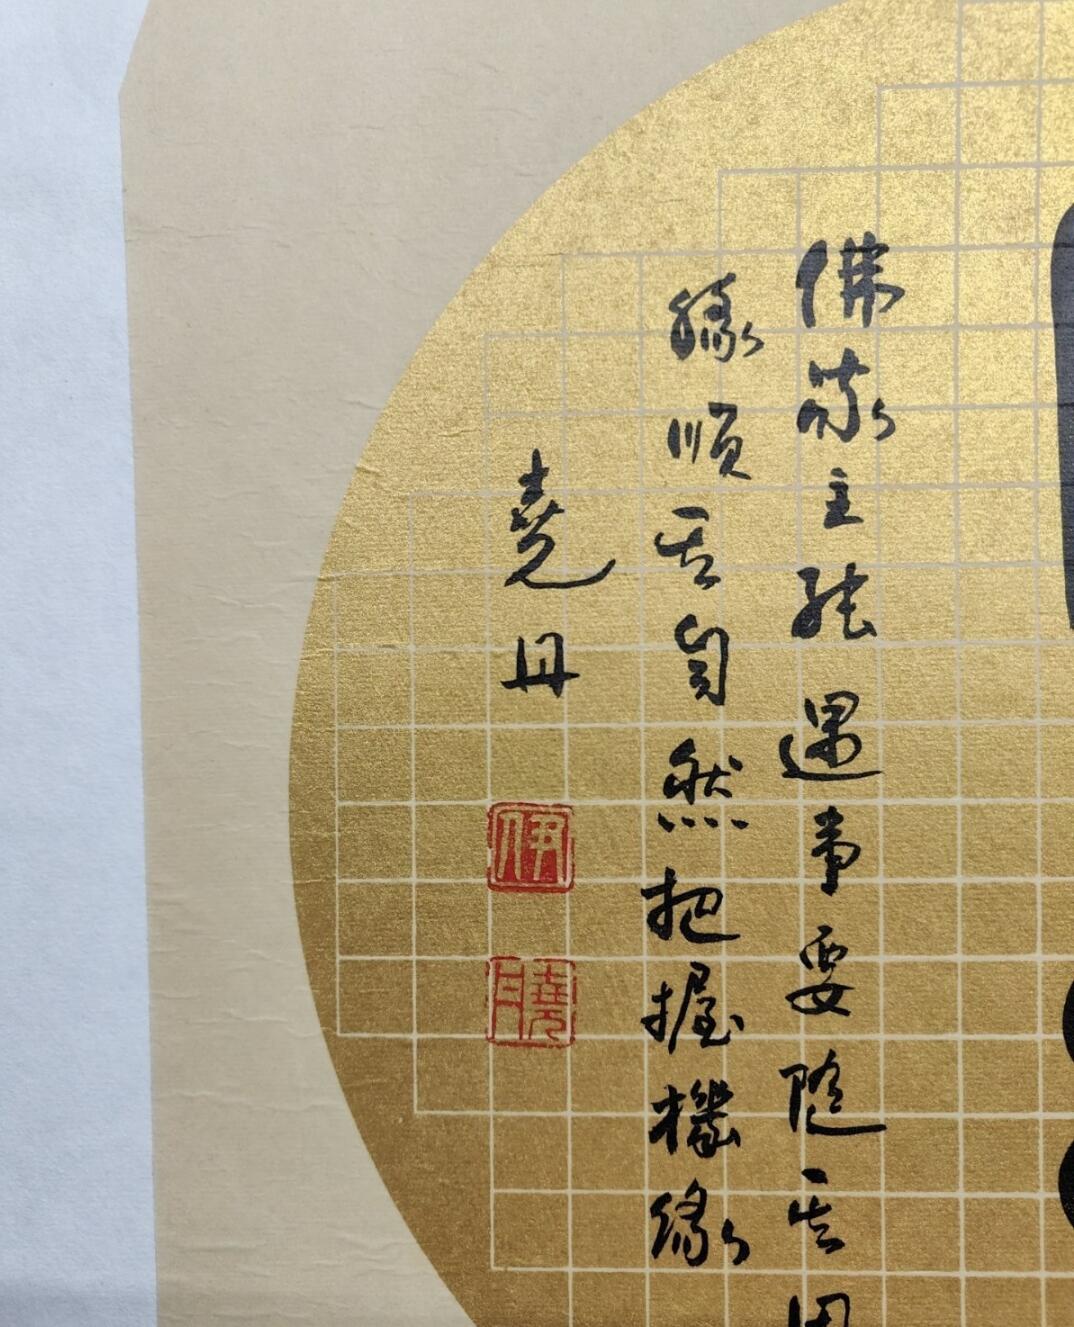 佛家主張遇事要隨其因
緣順其自然把握機緣
堯丹
伊
堯丹